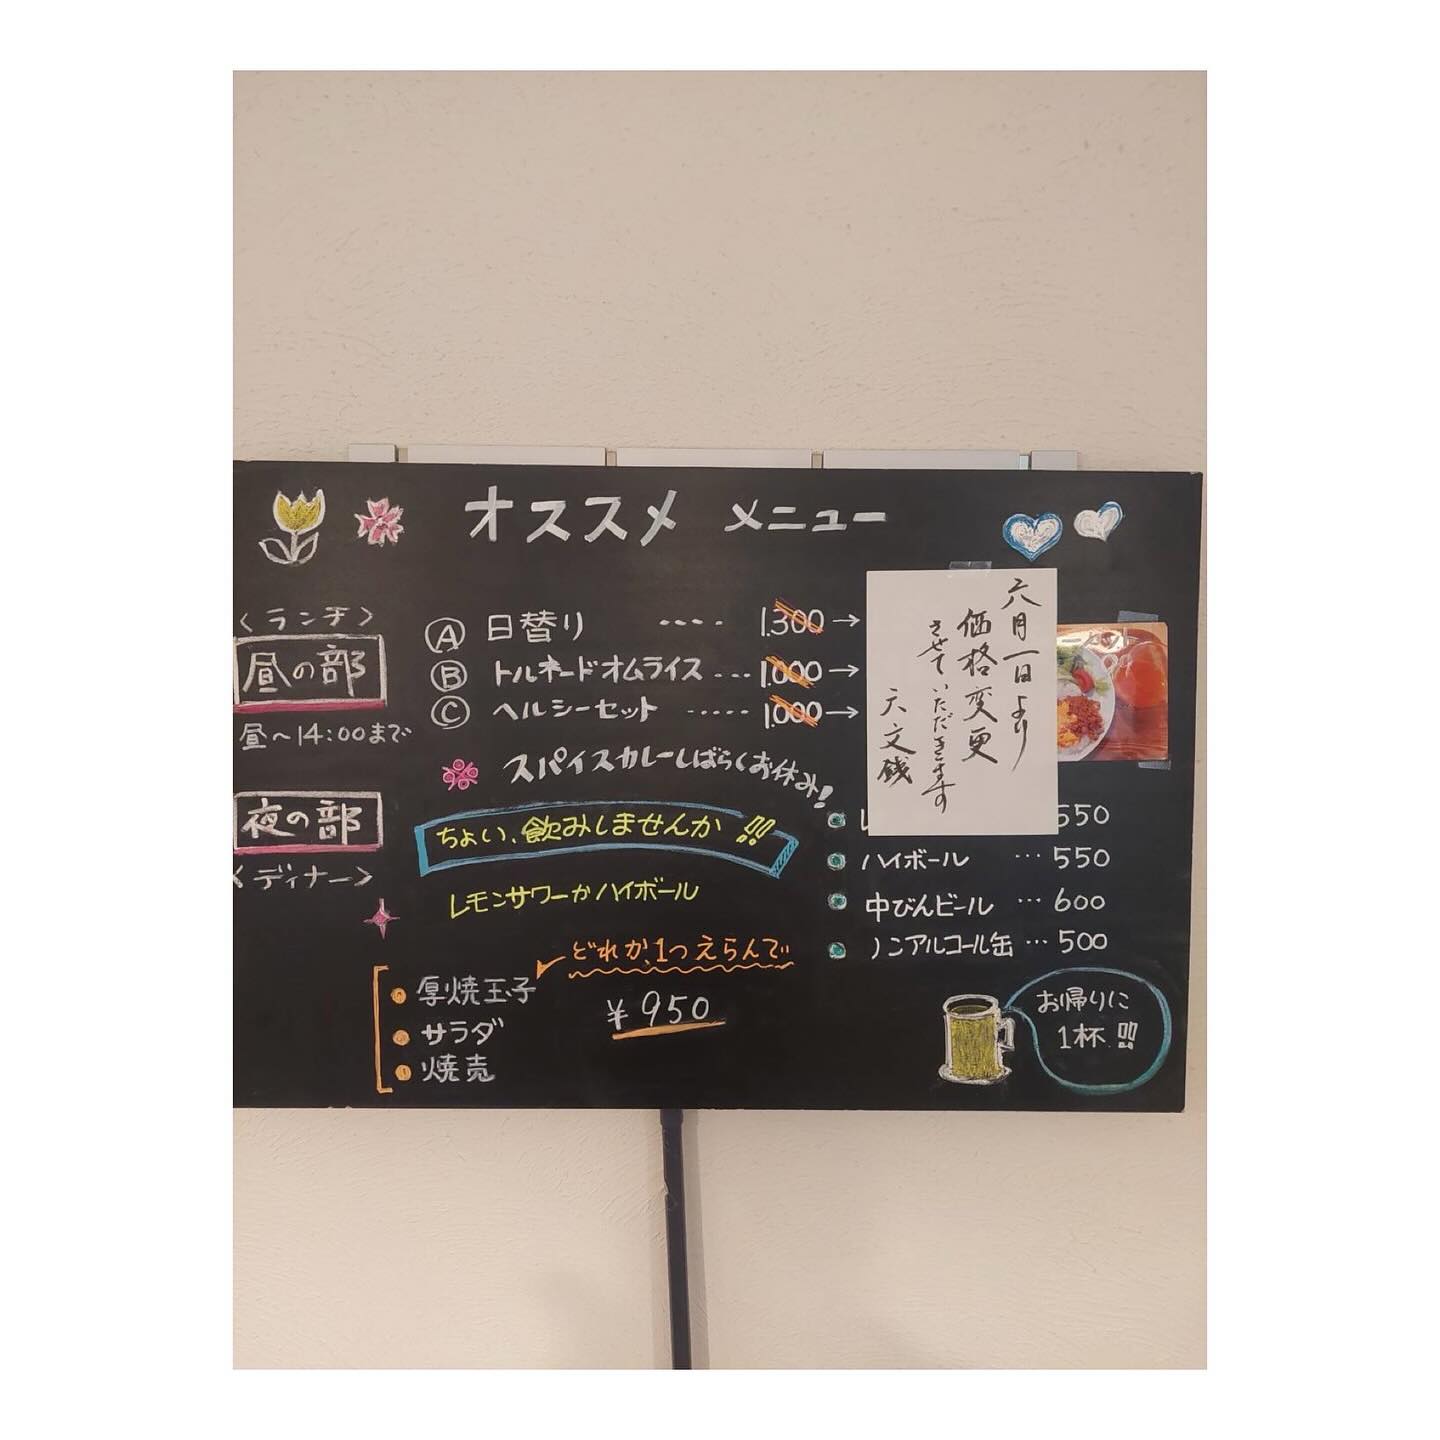 オススメ メニュー
〈ランチ〉
昼の部
昼〜14:00まで
Ⓐ 日替り ‥‥ 1.300→
Ⓑ トルネードオムライス … 1.000→
Ⓒ ヘルシーセット ‥‥‥ 1.000→
スパイスカレーしばらくお休み!
六月一日より
価格変更
させていただきます
六文銭
夜の部
〈ディナー〉
ちょい、飲みしませんか!!
レモンサワーかハイボール
どれか、1つえらんで
厚焼玉子
サラダ
焼売
¥950
レ 550
ハイボール … 550
中びんビール … 600
ノンアルコール缶 … 500
お帰りに
1杯!!